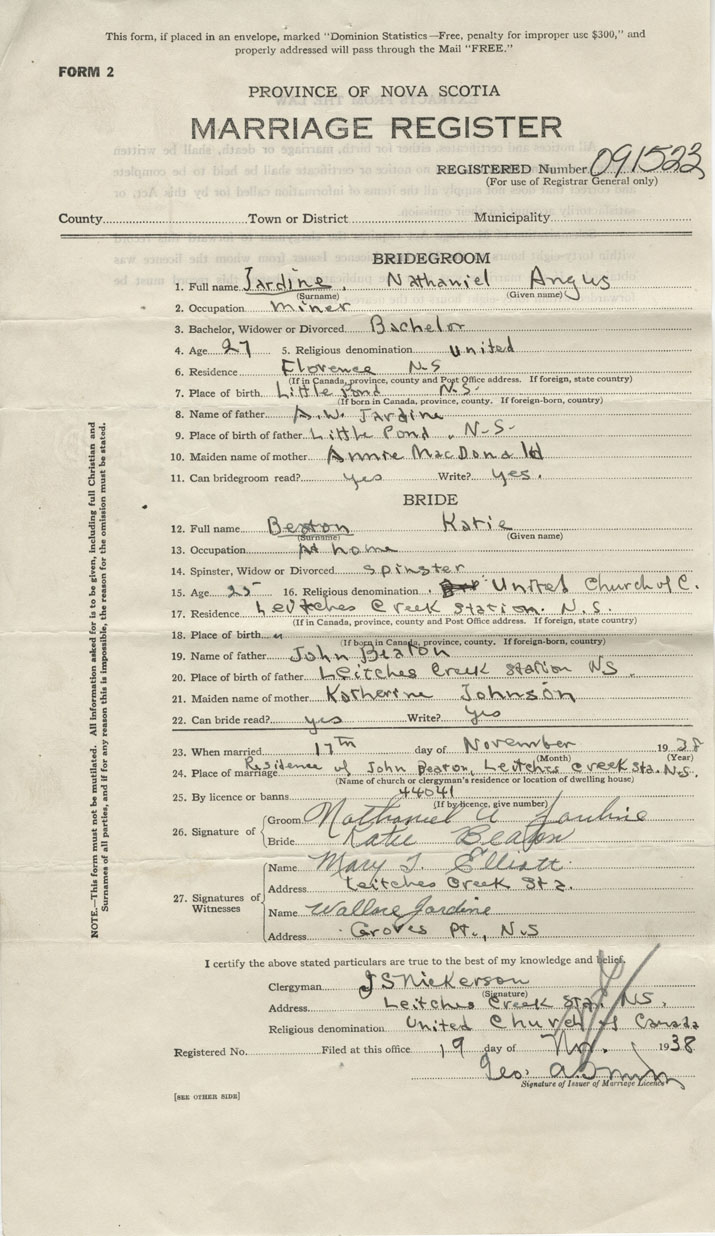 This form, if placed in an envelope, marked "Dominion Statistics—Free, penalty for improper use $300," and
properly addressed will pass through the Mail "FREE."
FORM 2
PROVINCE OF NOVA SCOTIA
MARRIAGE REGISTER
REGISTERED Number 091523
(For use of Registrar General only)
County Town or District Municipality
BRIDEGROOM
1. Full name Jardine, Nathaniel Angus
(Surname) (Given name)
2. Occupation miner
3. Bachelor, Widower or Divorced Bachelor
4. Age 27 5. Religious denomination United
6. Residence Florence N S
(If in Canada, province, county and Post Office address. If foreign, state country)
7. Place of birth Little Pond N.S.
(If born in Canada, province, county. If foreign-born, country)
8. Name of father A.W. Jardine
9. Place of birth of father Little Pond, N-S-
10. Maiden name of mother Annie MacDonald
11. Can bridegroom read? yes Write? yes.
BRIDE
12. Full name Beaton Katie
(Surname) (Given name)
13. Occupation At home
14. Spinster, Widow or Divorced spinster
15. Age 25 16. Religious denomination United Church of C.
17. Residence Leitches Creek Station. N.S.
(If in Canada, province, county and Post Office address. If foreign, state country)
18. Place of birth "
(If born in Canada, province, county. If foreign-born, country)
19. Name of father John Beaton
20. Place of birth of father Leitches Creek Station NS.
21. Maiden name of mother Katherine Johnson
22. Can bride read? yes Write? yes
23. When married 17th day of November 1938
(Month) (Year)
24. Place of marriage Residence of John Beaton, Leitches Creek Sta. N.S.
(Name of church or clergyman's residence or location of dwelling house)
25. By licence or banns 44041
(If by licence, give number)
26. Signature of Groom Nathaniel A Jardine
Bride Katie Beaton
27. Signatures of Witnesses Name Mary J. Elliott
Address Leitches Creek Sta.
Name Wallace Jardine
Address Groves Pt., N.S
I certify the above stated particulars are true to the best of my knowledge and belief,
Clergyman J S Nickerson
(Signature)
Address Leitches Creek Sta. NS.
Religious denomination United Church of Canada
Registered No. Filed at this office 19 day of Nov. 1938
Geo. A.
Signature of Issuer of Marriage Licence
[SEE OTHER SIDE]
NOTE.—This form must not be mutilated. All information asked for is to be given, including full Christian and
Surnames of all parties, and if for any reason this is impossible, the reason for the omission must be stated.